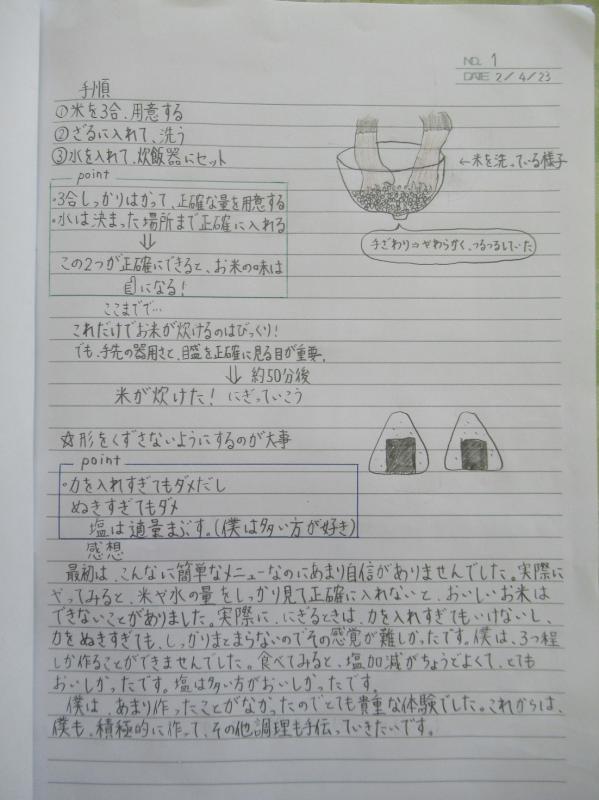 NO. 1
DATE 2/4/23
手順
①米を3合、用意する
②ざるに入れて、洗う
③水を入れて、炊飯器にセット
←米を洗っている様子
point
・3合しっかりはかって、正確な量を用意する
・水は決まった場所まで正確に入れる
⇓
手ざわり⇒やわらかく、つるつるしていた
この2つが正確にできると、お米の味は
になる！
ここまでで…
これだけでお米が炊けるのはびっくり！
でも、手先の器用さと、目盛を正確に見る目が重要。
⇓ 約50分後
米が炊けた！ にぎっていこう
☆形をくずさないようにするのが大事
point
・力を入れすぎてもダメだし
ぬきすぎてもダメ
塩は適量まぶす。(僕は多い方が好き)
感想
最初は、こんなに簡単なメニューなのにあまり自信がありませんでした。実際に
やってみると、米や水の量をしっかり見て正確に入れないと、おいしいお米は
できないことがありました。実際に、にぎるときは、力を入れすぎてもいけないし、
力をぬきすぎても、しっかりまとまらないのでその感覚が難しかったです。僕は、3つ程
しか作ることができませんでした。食べてみると、塩加減がちょうどよくて、とても
おいしかったです。塩は多い方がおいしかったです。
僕は、あまり作ったことがなかったのでとても貴重な体験でした。これからは、
僕も、積極的に作って、その他調理も手伝っていきたいです。